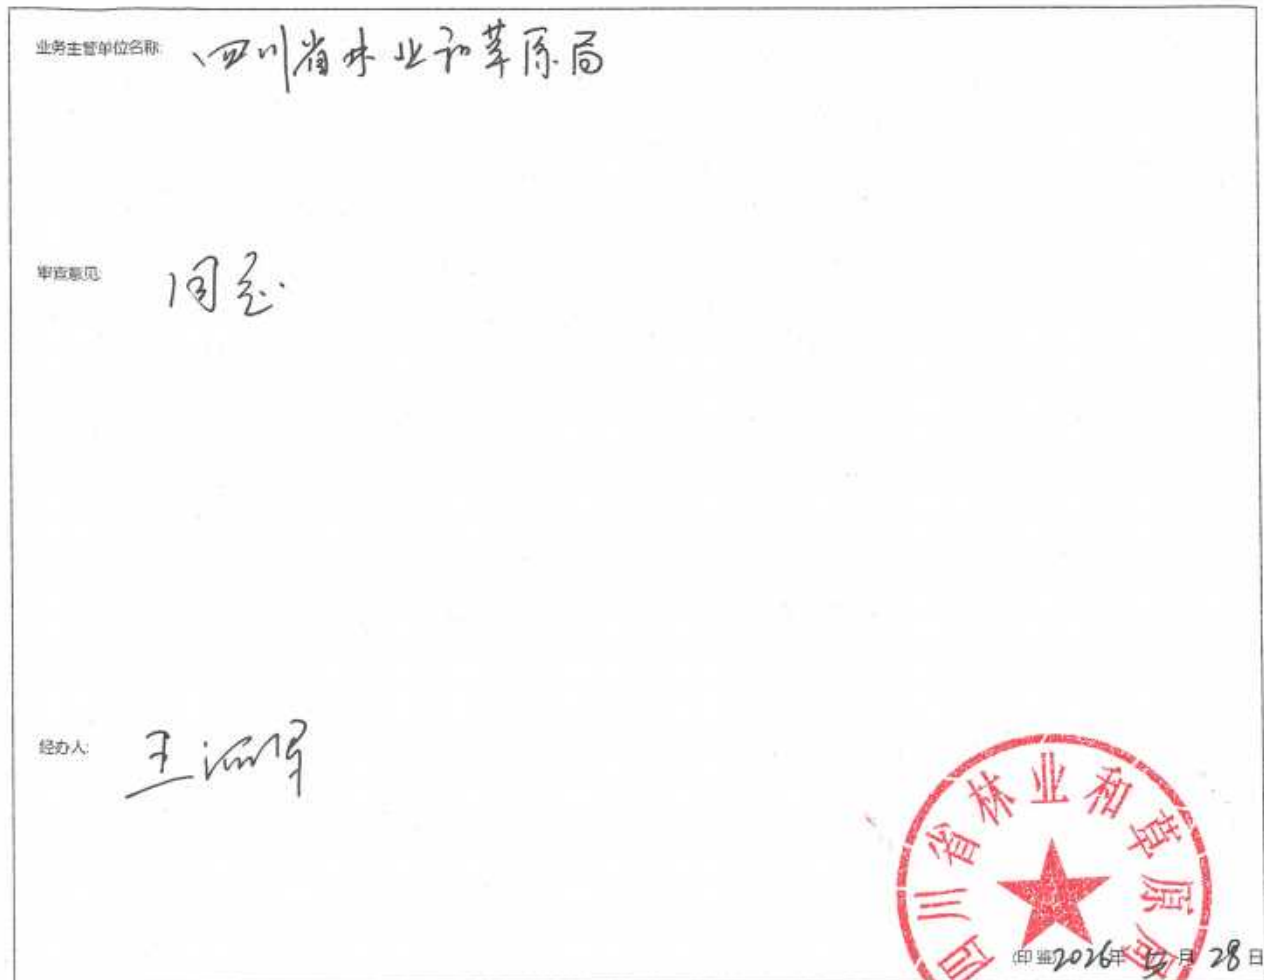 业务主管单位名称: 四川省林业和草原局
审查意见: 同意.
经办人: 王
四川省林业和草原局
(印鉴) 2026年 月 28日